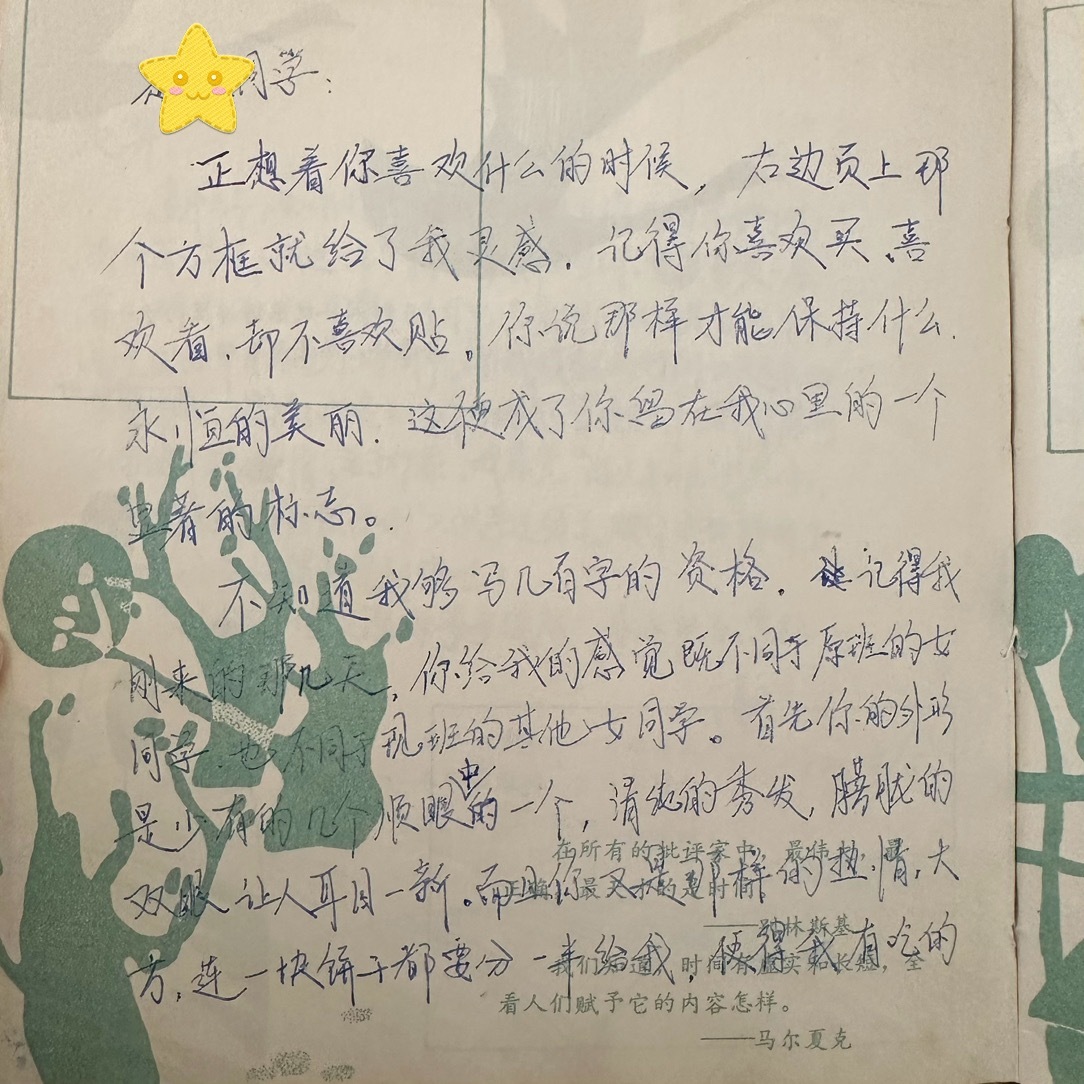 同学：
正想着你喜欢什么的时候，右边页上那
个方框就给了我灵感．记得你喜欢买、喜
欢看、却不喜欢贴。你说那样才能保持什么
永恒的美丽．这便成了你留在我心里的一个
显著的标志。
不知道我够写几百字的资格．记得我
刚来的那几天，你给我的感觉既不同于原班的女
同学．也不同于现班的其他女同学。首先你的外形
是少有的几个顺眼中的一个，清纯的秀发，朦胧的
双眼让人耳目一新。而且你又是那样的热情，大
方，连一块饼干都要分一半给我，使得我有吃的
在所有的批评家中，最伟大、最
正确、最天才的是时间。
——别林斯基
我们知道，时间有虚实和长短，全
看人们赋予它的内容怎样。
——马尔夏克